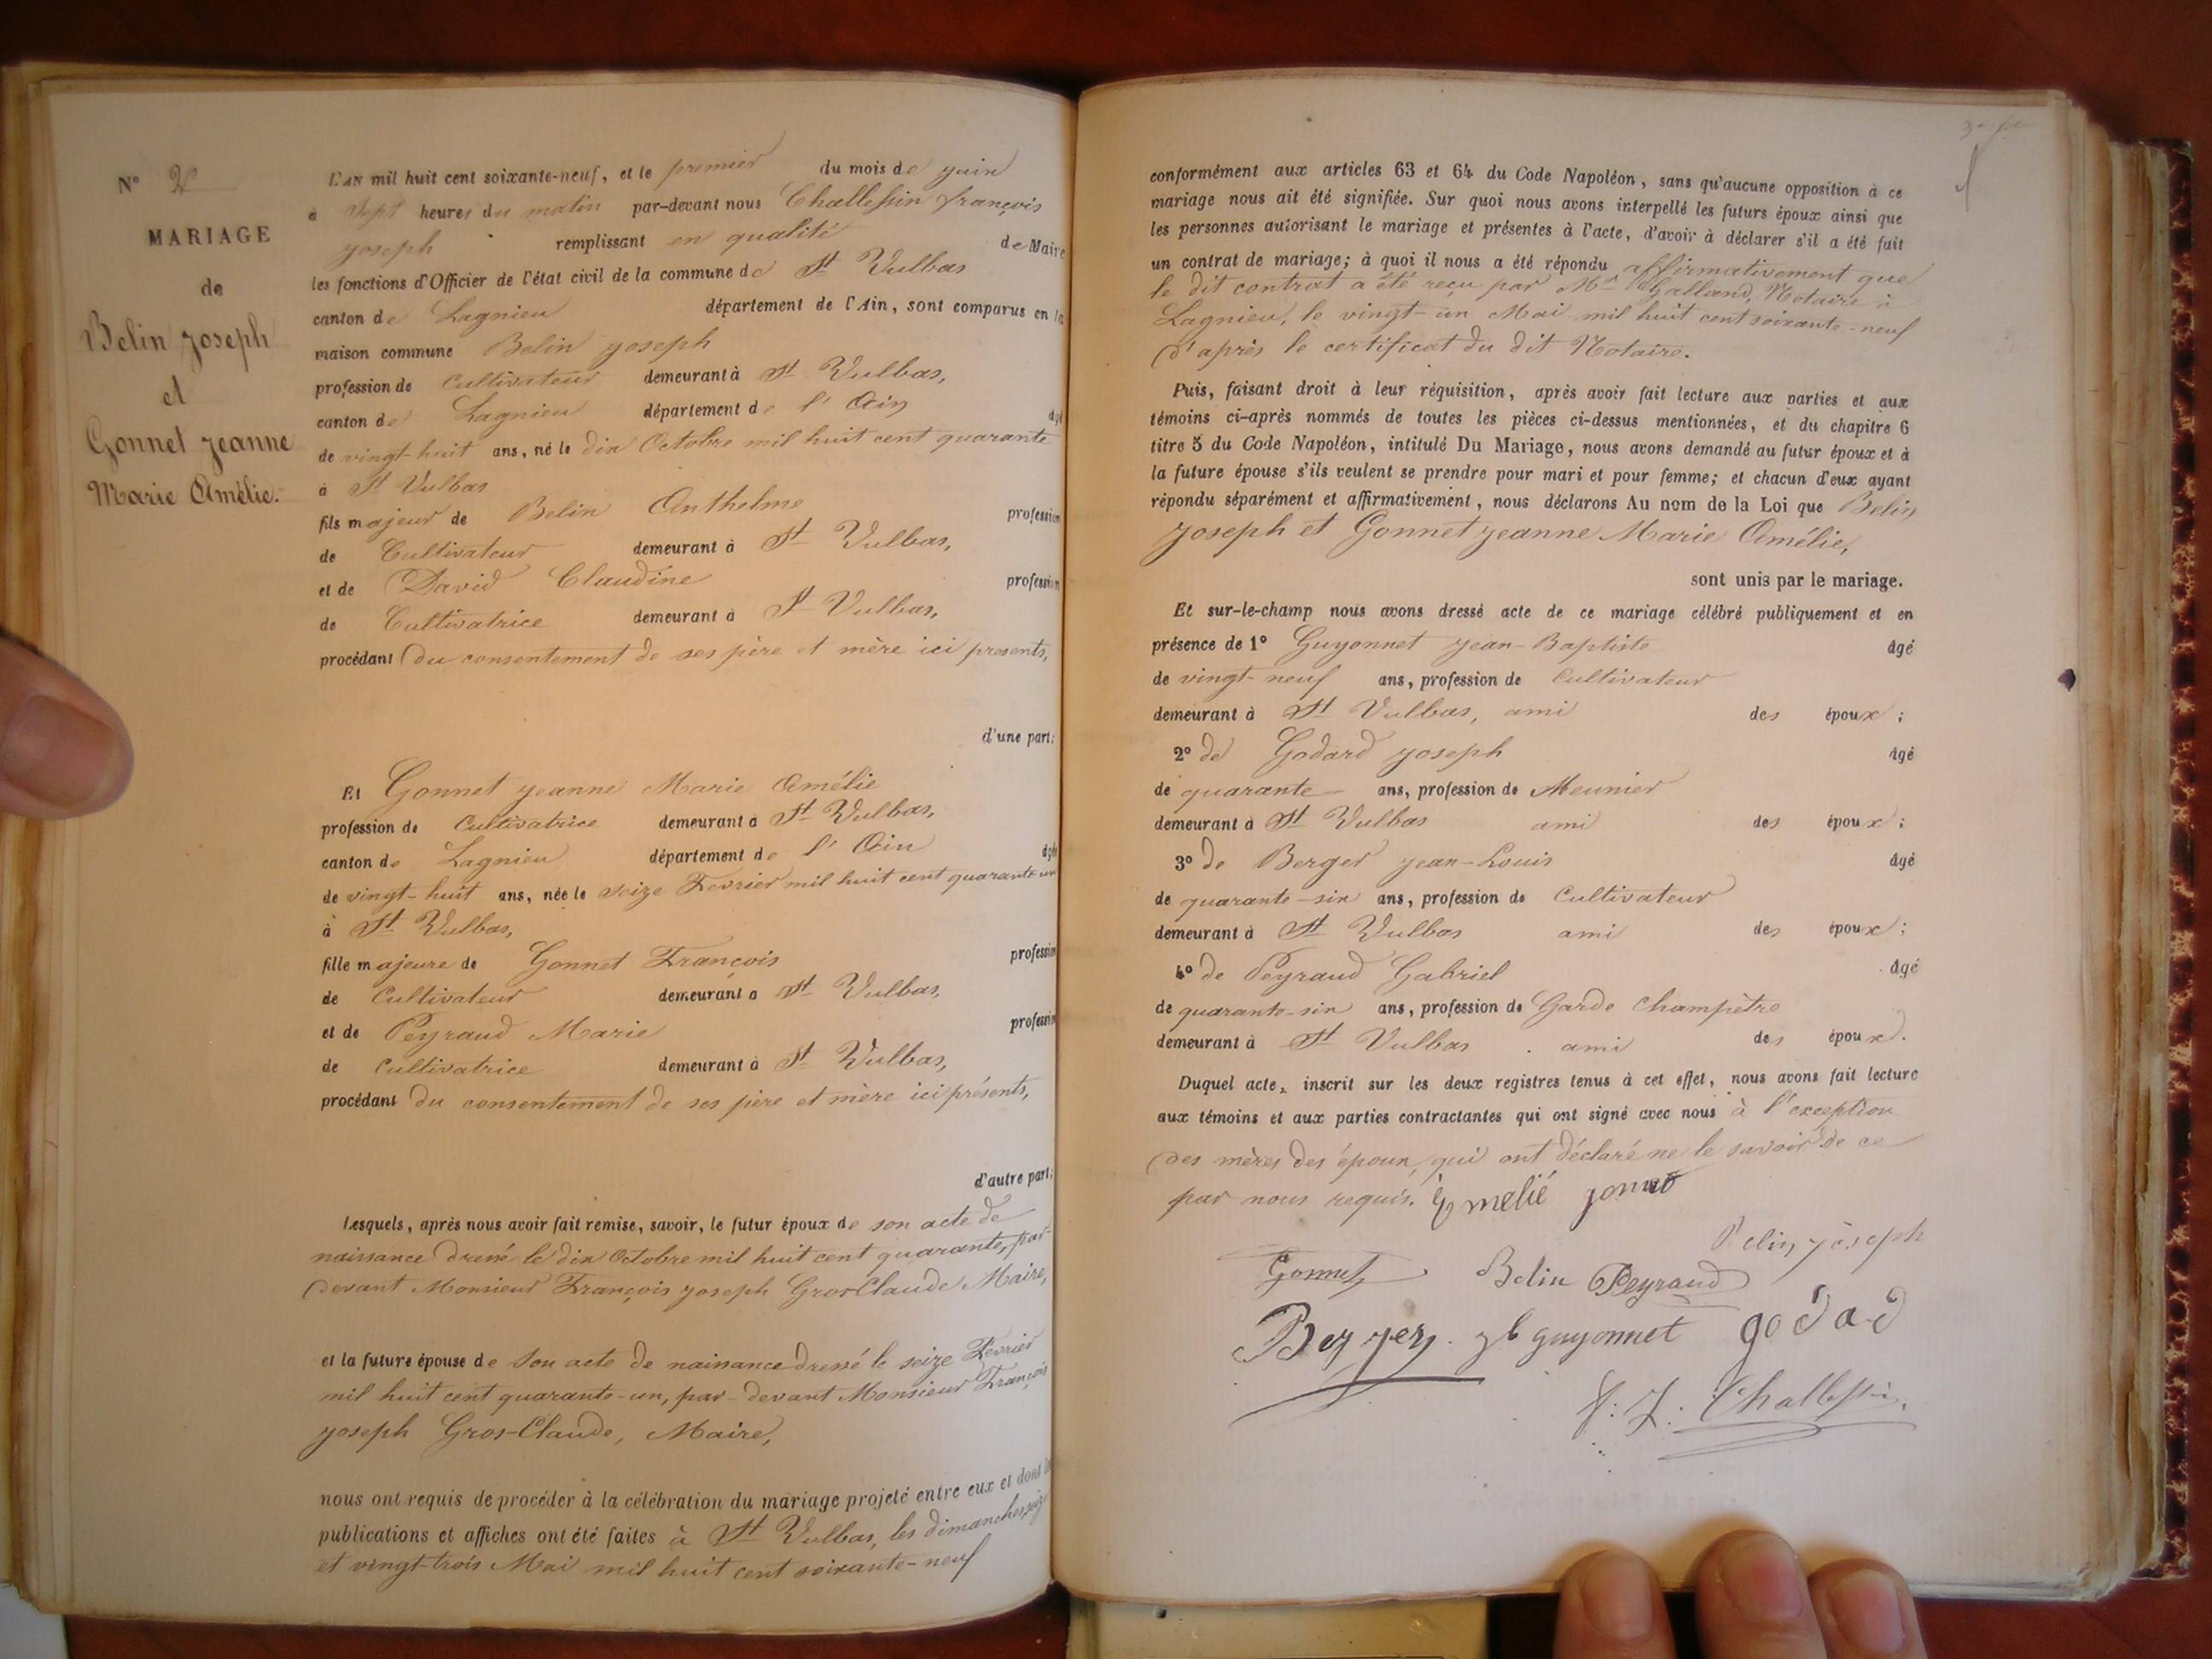 N° 2
MARIAGE
de
Belin Joseph
et
Gonnet Jeanne
Marie Amélie.
L'AN mil huit cent soixante-neuf, et le premier du mois de Juin
à sept heures du matin par-devant nous Challessin françois
Joseph remplissant en qualité de Maire
les fonctions d'Officier de l'état civil de la commune de St Vulbas
canton de Lagnieu département de l'Ain, sont comparus en la
maison commune Belin Joseph
profession de Cultivateur demeurant à St Vulbas,
canton de Lagnieu département de l'Ain âgé
de vingt-huit ans, né le dix Octobre mil huit cent quarante
à St Vulbas
fils majeur de Belin Anthelme profession
de Cultivateur demeurant à St Vulbas,
et de David Claudine profession
de Cultivatrice demeurant à St Vulbas,
procédant du consentement de ses père et mère ici présents,
d'une part;
Et Gonnet Jeanne Marie Amélie
profession de Cultivatrice demeurant à St Vulbas,
canton de Lagnieu département de l'Ain âgée
de vingt-huit ans, née le seize Fevrier mil huit cent quarante-un
à St Vulbas,
fille majeure de Gonnet François profession
de Cultivateur demeurant à St Vulbas,
et de Peyraud Marie profession
de Cultivatrice demeurant à St Vulbas,
procédant du consentement de ses père et mère ici présents,
d'autre part;
Lesquels, après nous avoir fait remise, savoir, le futur époux de son acte de
naissance dressé le dix Octobre mil huit cent quarante, par-
devant Monsieur François Joseph Gros-Claude Maire,
et la future épouse de son acte de naissance dressé le seize Fevrier
mil huit cent quarante-un, par-devant Monsieur François
Joseph Gros-Claude, Maire,
nous ont requis de procéder à la célébration du mariage projeté entre eux et dont les
publications et affiches ont été faites à St Vulbas, les dimanches seize
et vingt-trois Mai mil huit cent soixante-neuf
conformément aux articles 63 et 64 du Code Napoléon, sans qu'aucune opposition à ce
mariage nous ait été signifiée. Sur quoi nous avons interpellé les futurs époux ainsi que
les personnes autorisant le mariage et présentes à l'acte, d'avoir à déclarer s'il a été fait
un contrat de mariage; à quoi il nous a été répondu affirmativement que
le dit contrat a été reçu par Me Galland, Notaire à
Lagnieu, le vingt-un Mai mil huit cent soixante-neuf
d'après le certificat du dit Notaire.
Puis, faisant droit à leur réquisition, après avoir fait lecture aux parties et aux
témoins ci-après nommés de toutes les pièces ci-dessus mentionnées, et du chapitre 6
titre 5 du Code Napoléon, intitulé Du Mariage, nous avons demandé au futur époux et à
la future épouse s'ils veulent se prendre pour mari et pour femme; et chacun d'eux ayant
répondu séparément et affirmativement, nous déclarons Au nom de la Loi que Belin
Joseph et Gonnet Jeanne Marie Amélie,
sont unis par le mariage.
Et sur-le-champ nous avons dressé acte de ce mariage célébré publiquement et en
présence de 1° Guyonnet Jean-Baptiste âgé
de vingt-neuf ans, profession de Cultivateur
demeurant à St Vulbas, ami des époux;
2° de Godard Joseph âgé
de quarante ans, profession de Meunier
demeurant à St Vulbas ami des époux;
3° de Berger Jean-Louis âgé
de quarante-six ans, profession de Cultivateur
demeurant à St Vulbas ami des époux;
4° de Peyraud Gabriel âgé
de quarante-six ans, profession de Garde Champêtre
demeurant à St Vulbas ami des époux.
Duquel acte, inscrit sur les deux registres tenus à cet effet, nous avons fait lecture
aux témoins et aux parties contractantes qui ont signé avec nous à l'exception
des mères des époux, qui ont déclaré ne le savoir de ce
par nous requis. Emelié gonnet
Belin Joseph
Gonnet Belin Peyraud
Berger jb guyonnet godad
f: J: Challessin,